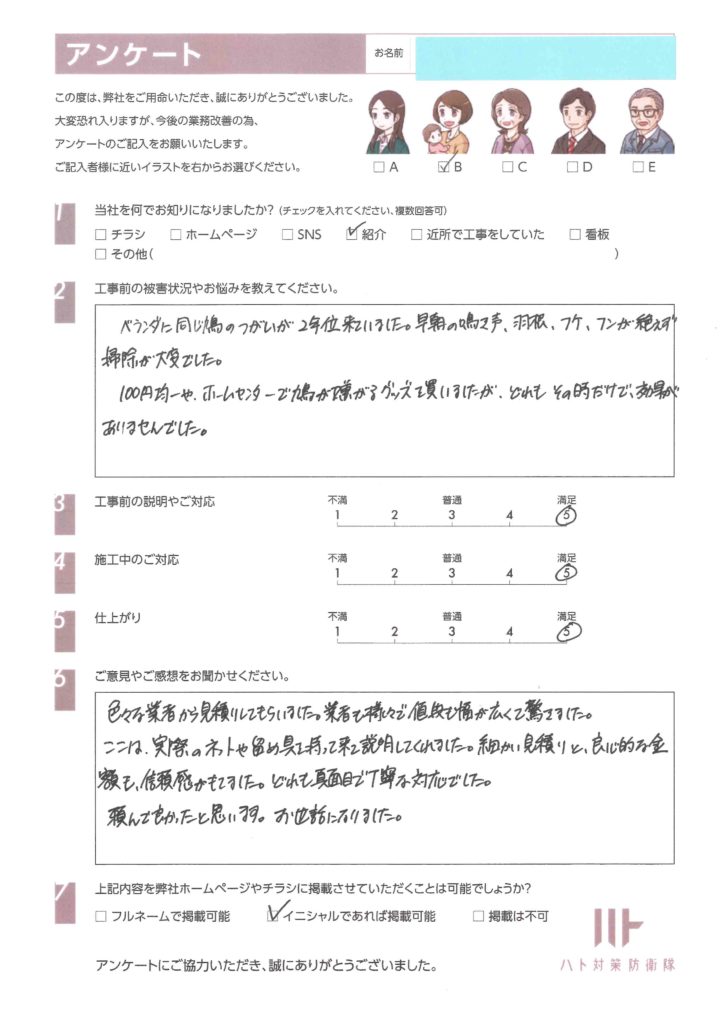 アンケート
お名前
この度は、弊社をご用命いただき、誠にありがとうございました。
大変恐れ入りますが、今後の業務改善の為、
アンケートのご記入をお願いいたします。
ご記入者様に近いイラストを右からお選びください。
□A ☑B □C □D □E
1 当社を何でお知りになりましたか?(チェックを入れてください、複数回答可)
□チラシ □ホームページ □SNS ☑紹介 □近所で工事をしていた □看板
□その他( )
2 工事前の被害状況やお悩みを教えてください。
ベランダに同じ鳩のつがいが2年位来ていました。早朝の鳴き声、羽根、フケ、フンが絶えず
掃除が大変でした。
100円均一や、ホームセンターで鳩が嫌がるグッズを買いましたが、どれもその時だけで、効果が
ありませんでした。
3 工事前の説明やご対応
不満 普通 満足
1 2 3 4 5
4 施工中のご対応
不満 普通 満足
1 2 3 4 5
5 仕上がり
不満 普通 満足
1 2 3 4 5
6 ご意見やご感想をお聞かせください。
色々な業者から見積りしてもらいました。業者も様々で値段も幅が広くて驚きました。
ここは、実際のネットや留め具を持って来て説明してくれました。細かい見積りと、良心的な金
額も、信頼感がもてました。どれも真面目で丁寧な対応でした。
頼んで良かったと思います。お世話になりました。
7 上記内容を弊社ホームページやチラシに掲載させていただくことは可能でしょうか?
□フルネームで掲載可能 ☑イニシャルであれば掲載可能 □掲載は不可
アンケートにご協力いただき、誠にありがとうございました。
ハト
ハト対策防衛隊